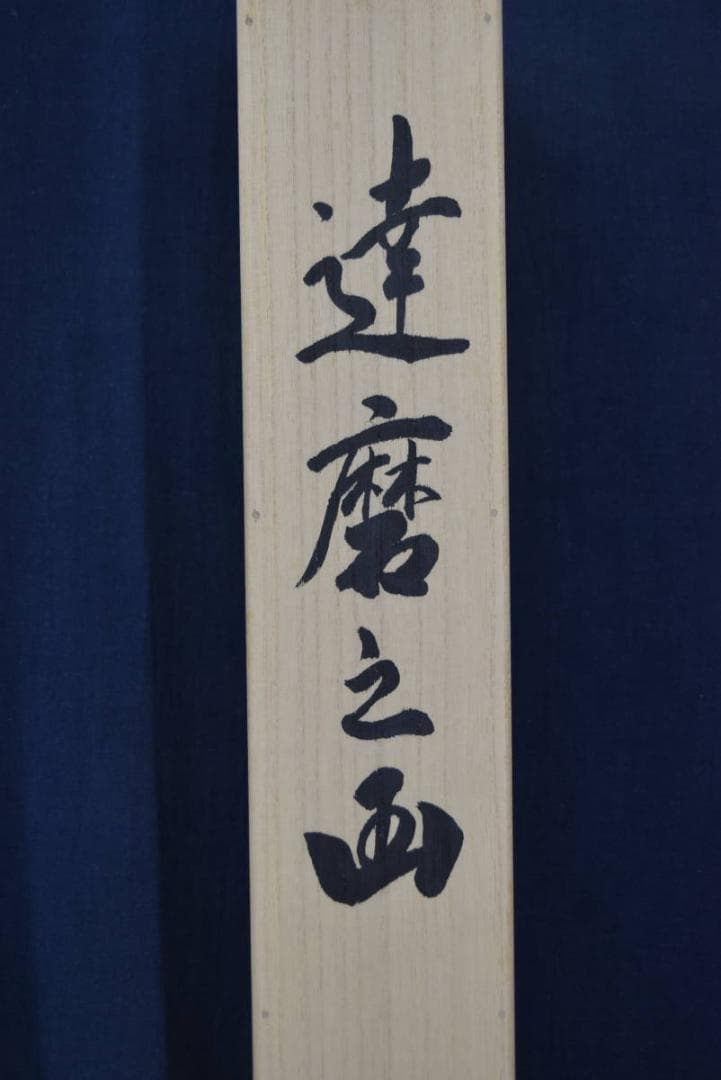 達磨之画